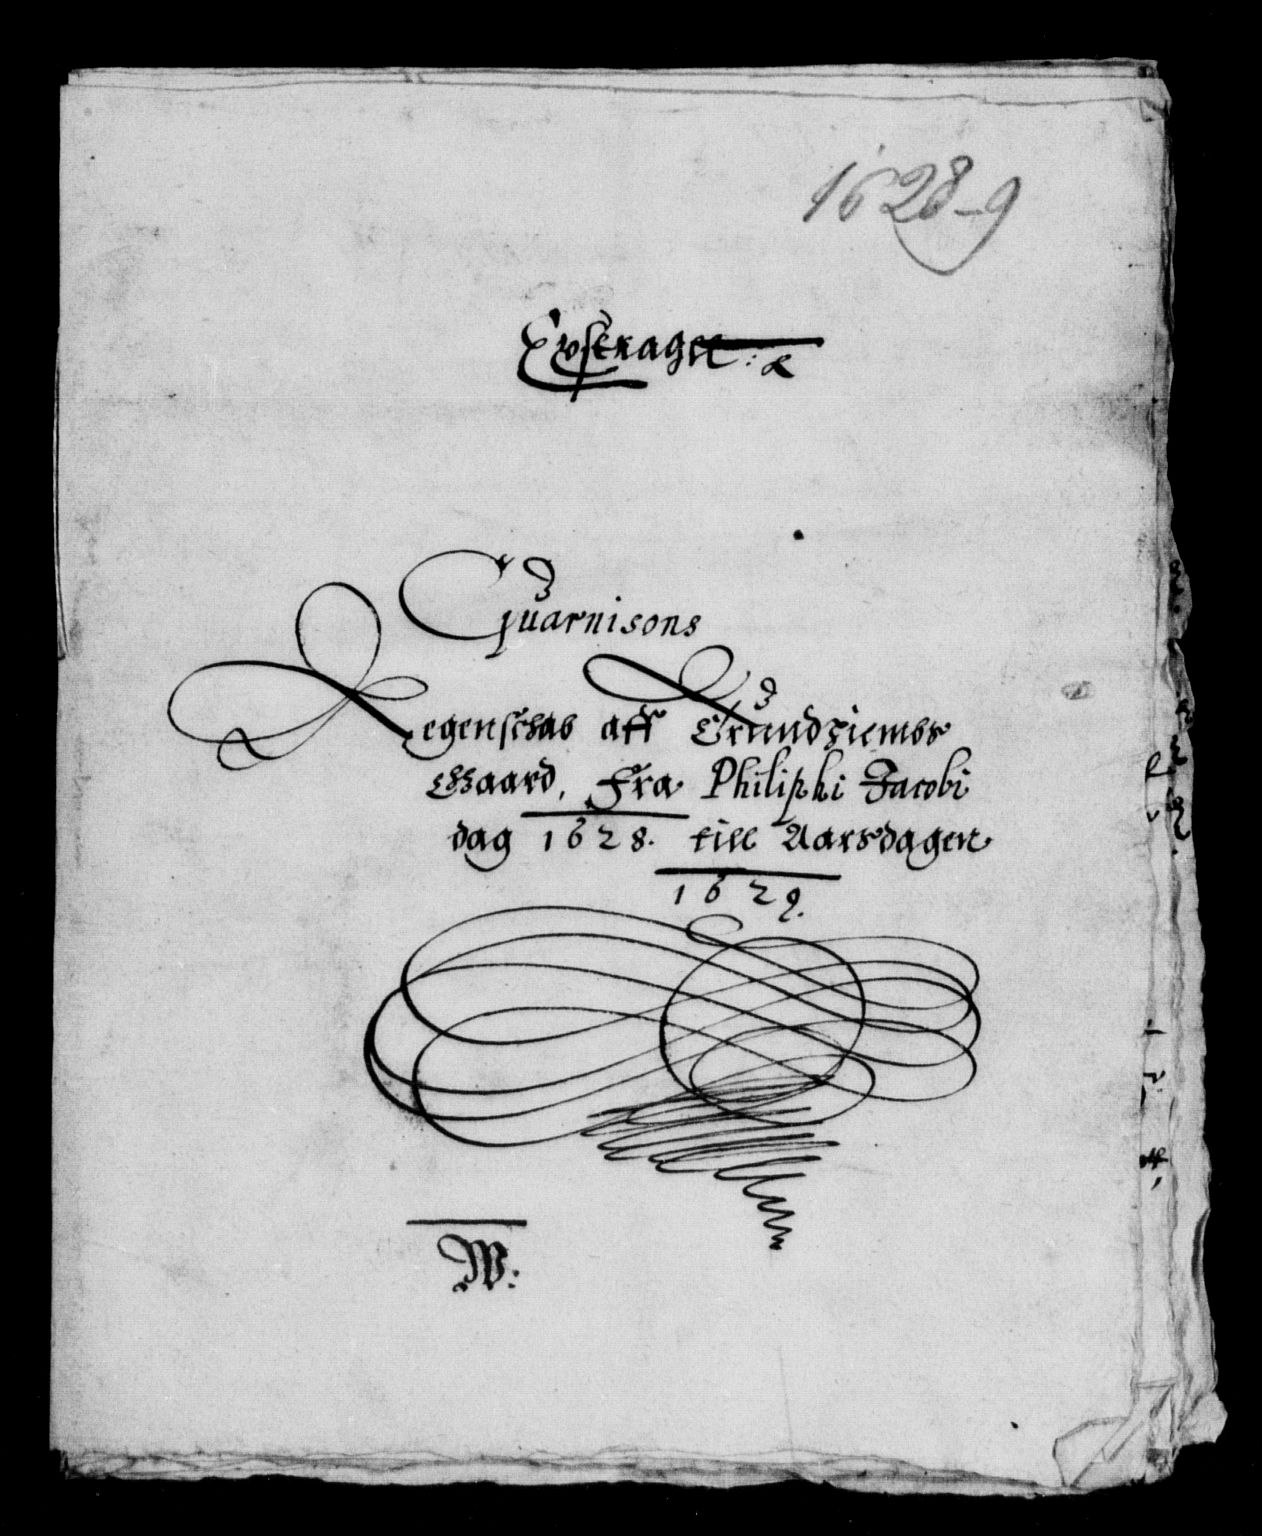 1628-9
Quarnisons
Regenschab aff Trundhiembs
Gaard, Fra Philiphi Jacobi
dag 1628. till Aarsdagen
1629.
W: